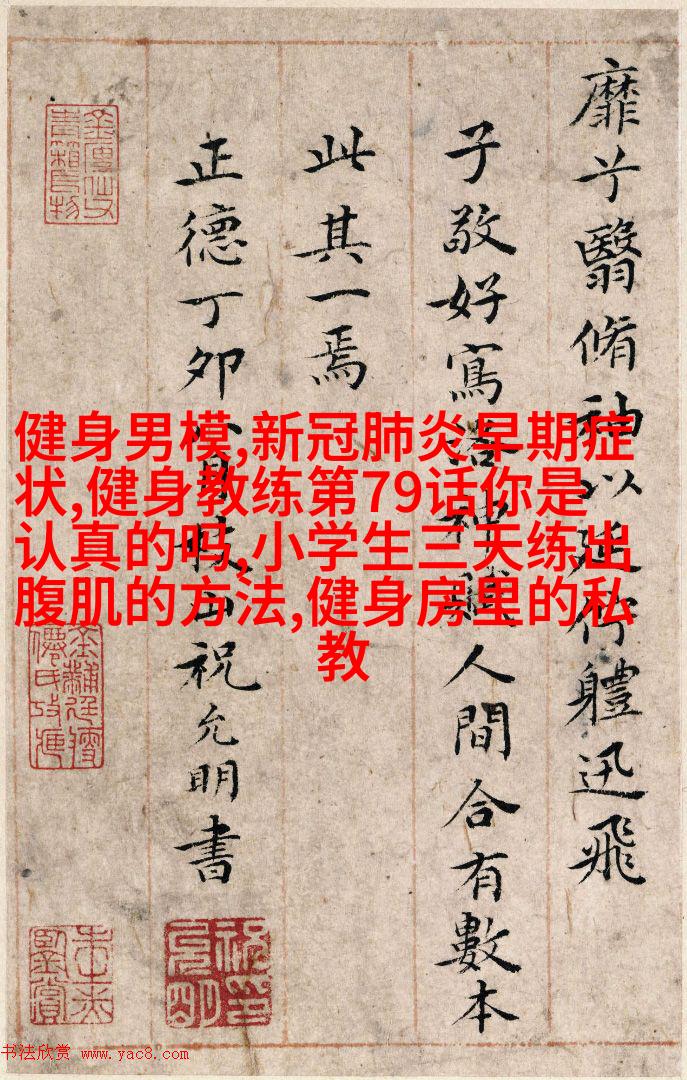 靡兮翳脩袖以延佇體迅飛
子敬好寫洛神賦人間合有數本
此其一焉
正德丁卯八月枝山祝允明書
健身男模,新冠肺炎早期症
状,健身教练第79话你是
认真的吗,小学生三天练出
腹肌的方法,健身房里的私
教
书法欣赏 www.yac8.com